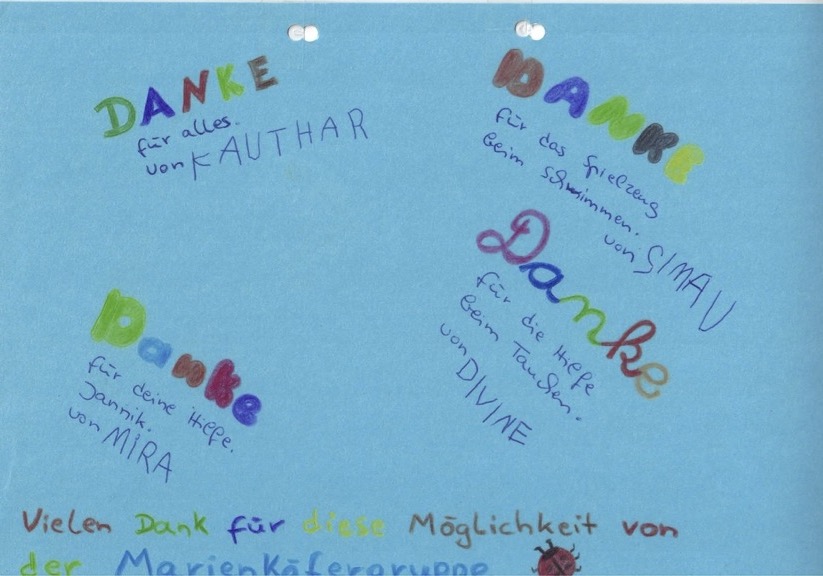 DANKE
für alles.
von KAUTHAR
DANKE
für das Spielzeug
beim schwimmen.
von SIMAV
Danke
für die Hilfe
beim Tauchen.
von DIVINE
Danke
für deine Hilfe.
Jannik.
von MIRA
Vielen Dank für diese Möglichkeit von
der Marienkäfergruppe